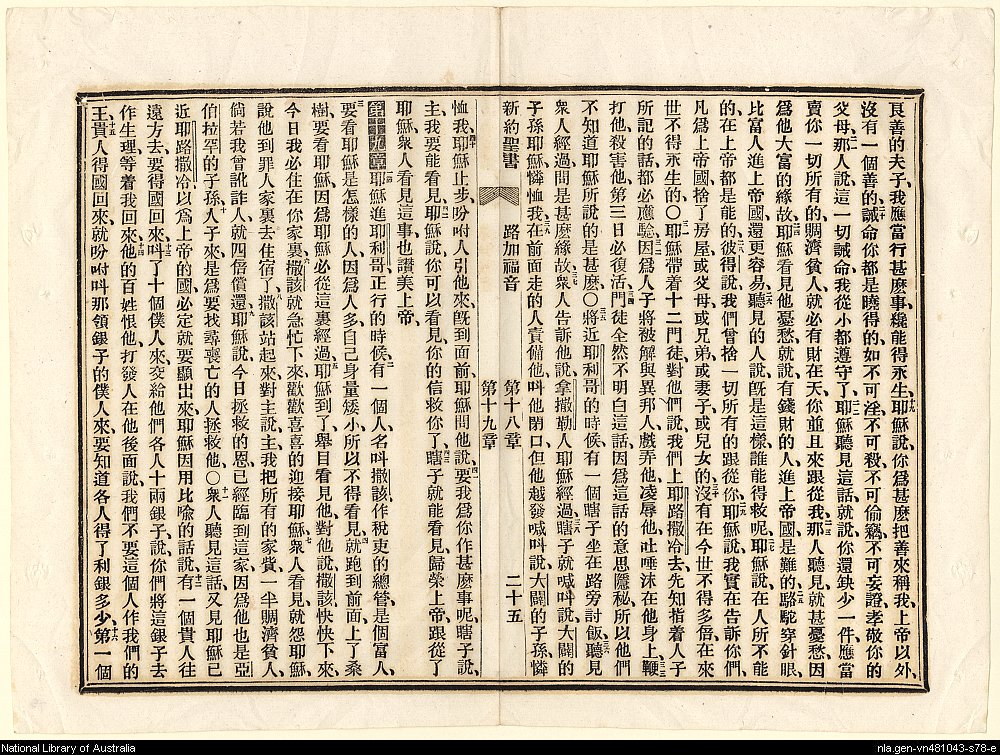 良善的夫子、我應當行甚麼事、纔能得永生、耶穌說、你爲甚麼把善來稱我、上帝以外、
沒有一個善的、誡命你都是曉得的、如不可淫、不可殺、不可偷竊、不可妄證、孝敬你的
父母、那人說、這一切誡命、我從小都遵守了、耶穌聽見這話、就說、你還缺少一件、應當
賣你一切所有的、賙濟貧人、就必有財在天、你並且來跟從我、那人聽見、就甚憂愁、因
爲他大富的緣故、耶穌看見他憂愁、就說、有錢財的人、進上帝國、是難的、駱駝穿針眼、
比富人進上帝國、還更容易、聽見的人說、旣是這樣、誰能得救呢、耶穌說、在人所不能
的、在上帝都是能的、彼得說、我們曾捨一切所有的、跟從你、耶穌說、我實在告訴你們、
凡爲上帝國、捨了房屋、或父母、或兄弟、或妻子、或兒女的、沒有在今世不得多倍、在來
世不得永生的、〇耶穌帶着十二門徒、對他們說、我們上耶路撒冷去、先知指着人子
所記的話、都必應驗、因爲人子將被解與異邦人、戲弄他、凌辱他、吐唾沫在他身上、鞭
打他、殺害他、第三日必復活、門徒全然不明白這話、因爲這話的意思隱秘、所以他們
不知道耶穌所說的是甚麼、〇將近耶利哥的時候、有一個瞎子坐在路旁討飯、聽見
衆人經過、問是甚麼緣故、衆人告訴他說、拿撒勒人耶穌經過、瞎子就喊叫說、大闢的
子孫耶穌、憐恤我、在前面走的人責備他、叫他閉口、但他越發喊叫說、大闢的子孫、憐
新約聖書 路加福音 第十八章 第十九章 二十五
恤我、耶穌止步、吩咐人引他來、旣到面前、耶穌問他說、要我爲你作甚麼事呢、瞎子說、
主、我要能看見、耶穌說、你可以看見、你的信救你了、瞎子就能看見、歸榮上帝、跟從了
耶穌、衆人看見這事、也讚美上帝、
第十九章 耶穌進耶利哥、正行的時候、有一個人名叫撒該、作稅吏的總管、是個富人、
要看耶穌是怎樣的人、因爲人多、自己身量矮小、所以不得看見、就跑到前面、上了桑
樹、要看耶穌、因爲耶穌必從這裏經過、耶穌到了、舉目看見他、對他說、撒該快快下來、
今日我必住在你家裏、撒該就急忙下來、歡歡喜喜的迎接耶穌、衆人看見、就怨耶穌
說、他到罪人家裏去住宿了、撒該站起來、對主說、主、我把所有的家貲、一半賙濟貧人、
倘若我曾訛詐人、就四倍償還、耶穌說、今日拯救的恩、已經臨到這家、因爲他也是亞
伯拉罕的子孫、人子來、是爲要找尋喪亡的人拯救他、〇衆人聽見這話、又見耶穌已
近耶路撒冷、以爲上帝的國、必定就要顯出來、耶穌因用比喻的話、說、有一個貴人往
遠方去、要得國回來、叫了十個僕人來、交給他們各人十兩銀子、說、你們將這銀子去
作生理、等着我回來、他的百姓恨他、打發人在他後面說、我們不要這個人作我們的
王、貴人得國回來、就吩咐叫那領銀子的僕人來、要知道各人得了利銀多少、第一個
National Library of Australia
nla.gen-vn481043-s78-e